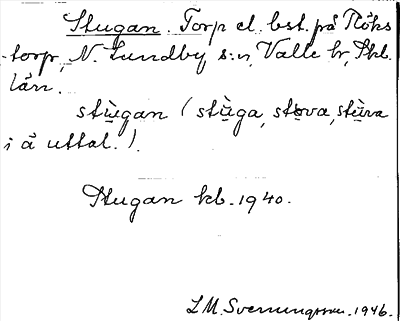 Stugan. Torp el. bst. på Röks
torp, N. Lundby s:n, Valle hr, Skb.
län.
stùgan (stùga, stova, stùva
i ä uttal.).
Stugan kb. 1940.
L M. Svenungsson. 1946.